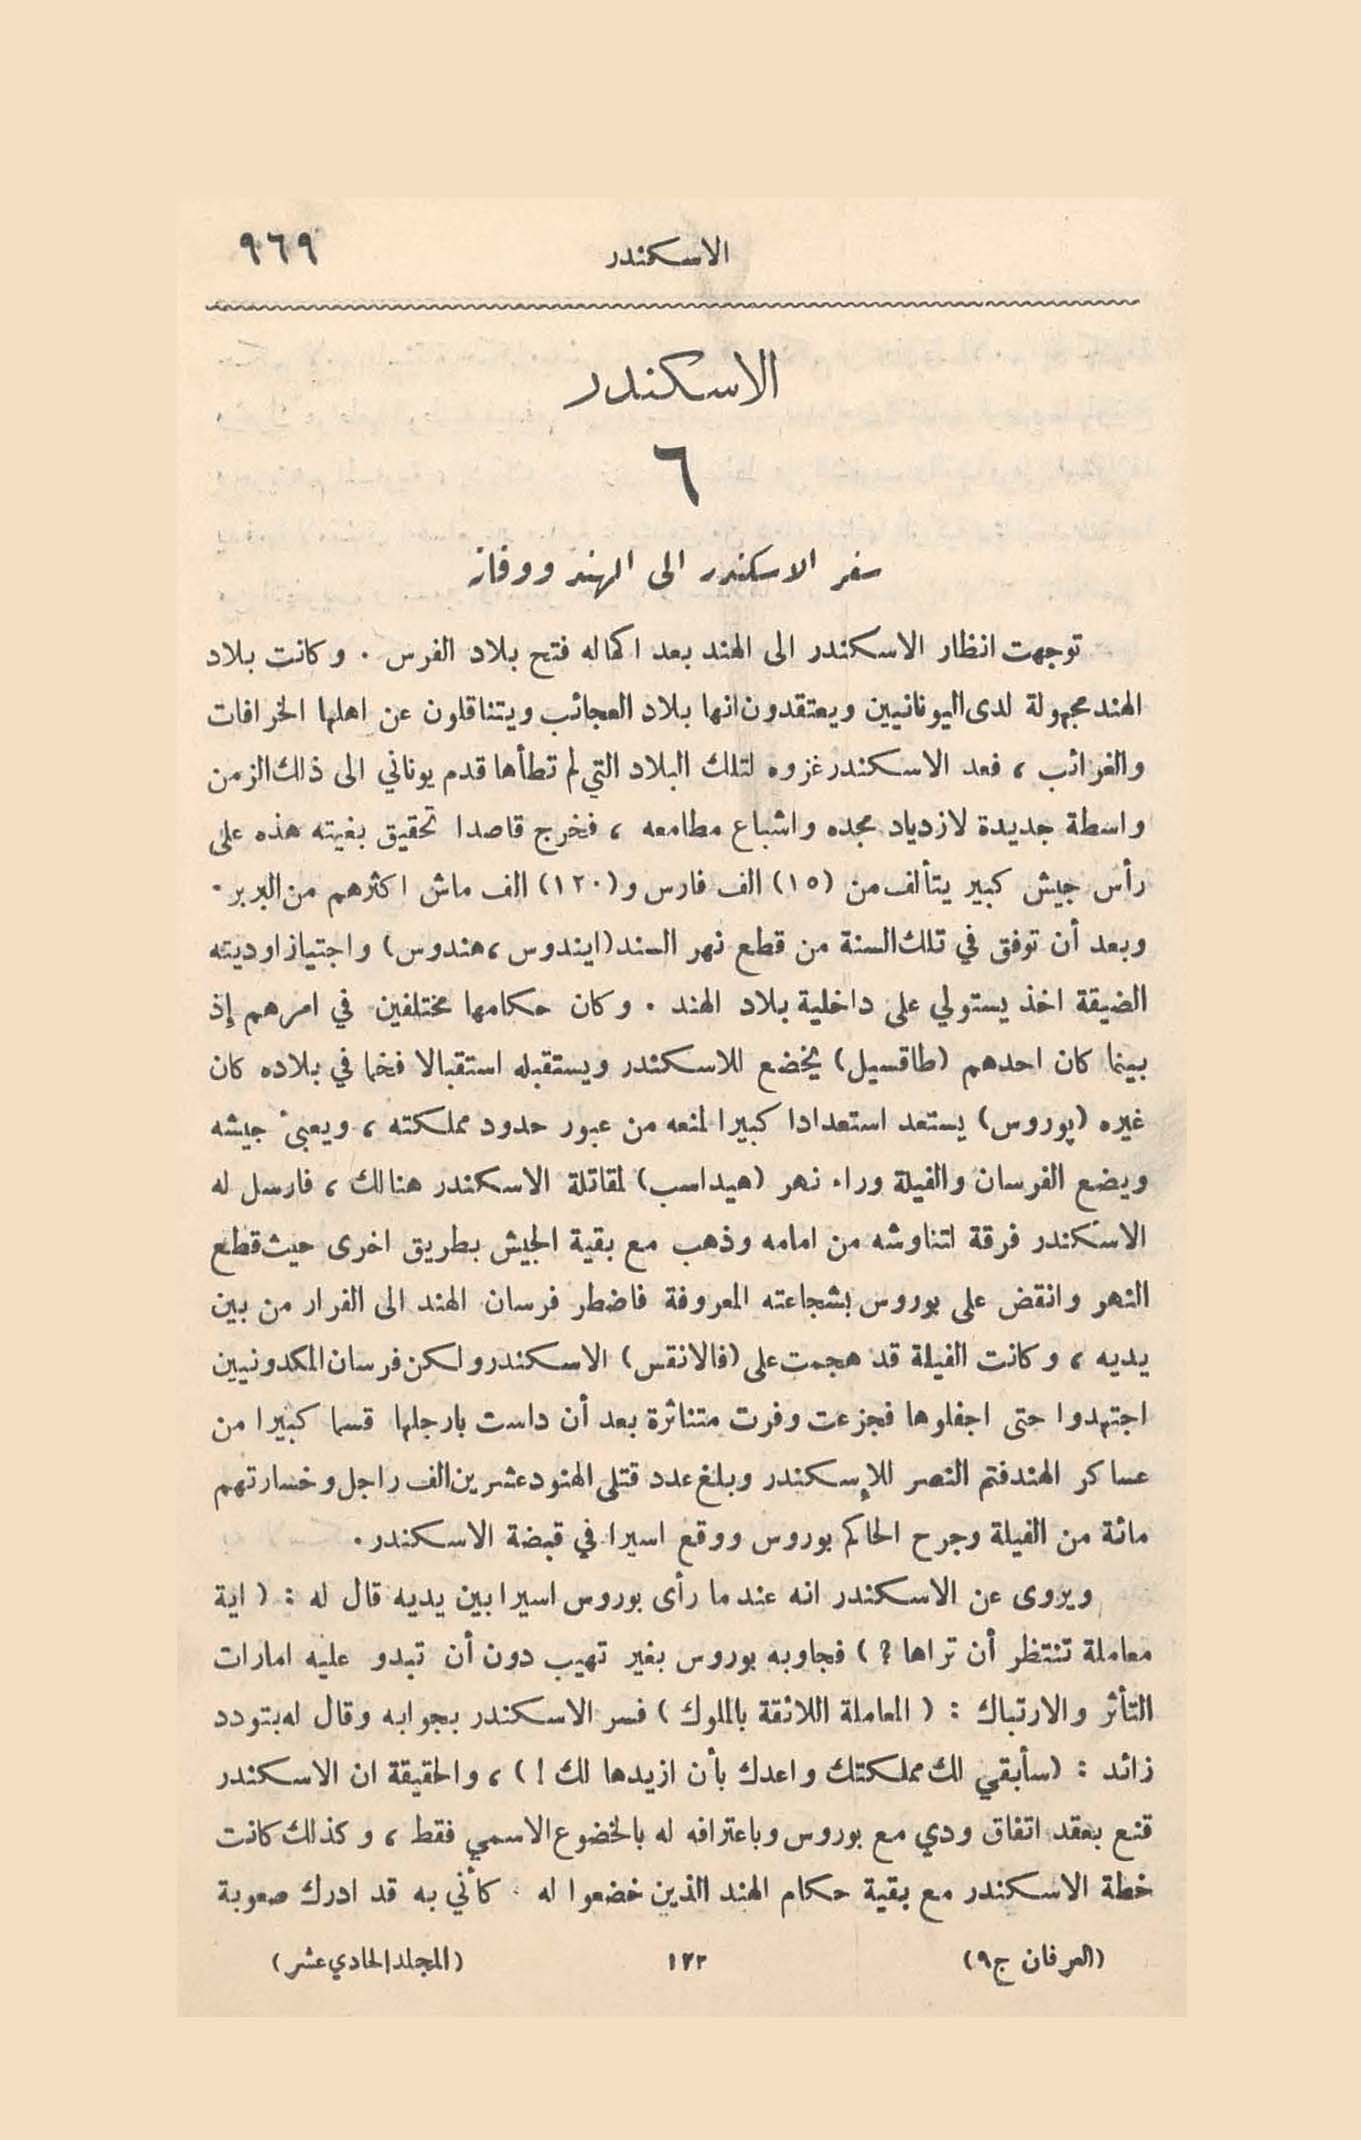 الاسكندر ٩٦٩
الاسكندر
٦
سفر الاسكندر الى الهند ووفاته
توجهت انظار الاسكندر الى الهند بعد اكماله فتح بلاد الفرس . وكانت بلاد
الهند مجهولة لدى اليونانيين ويعتقدون انها بلاد العجائب ويتناقلون عن اهلها الخرافات
والغرائب ، فعد الاسكندر غزوه لتلك البلاد التي لم تطأها قدم يوناني الى ذلك الزمن
واسطة جديدة لازدياد مجده واشباع مطامعه ، فخرج قاصدا تحقيق بغيته هذه على
رأس جيش كبير يتألف من (١٥) الف فارس و(١٢٠) الف ماش اكثرهم من البربر .
وبعد أن توفق في تلك السنة من قطع نهر السند (ايندوس ، هندوس) واجتياز اوديته
الضيقة اخذ يستولي على داخلية بلاد الهند . وكان حكامها مختلفين في امرهم إذ
بينما كان احدهم (طاقسيل) يخضع للاسكندر ويستقبله استقبالا فخما في بلاده كان
غيره (پوروس) يستعد استعدادا كبيرا لمنعه من عبور حدود مملكته ، ويعبئ جيشه
ويضع الفرسان والفيلة وراء نهر (هيداسب) لمقاتلة الاسكندر هنالك ، فارسل له
الاسكندر فرقة لتناوشه من امامه وذهب مع بقية الجيش بطريق اخرى حيث قطع
النهر وانقض على بوروس بشجاعته المعروفة فاضطر فرسان الهند الى الفرار من بين
يديه ، وكانت الفيلة قد هجمت على (فالانقس) الاسكندر ولكن فرسان المكدونيين
اجتهدوا حتى اجفلوها فجزعت وفرت متناثرة بعد أن داست بارجلها قسما كبيرا من
عساكر الهند فتم النصر للإسكندر وبلغ عدد قتلى الهنود عشرين الف راجل وخسارتهم
مائة من الفيلة وجرح الحاكم بوروس ووقع اسيرا في قبضة الاسكندر .
ويروى عن الاسكندر انه عندما رأى بوروس اسيرا بين يديه قال له : ( اية
معاملة تنتظر أن تراها ? ) فجاوبه بوروس بغير تهيب دون أن تبدو عليه امارات
التأثر والارتباك : ( المعاملة اللائقة بالملوك ) فسر الاسكندر بجوابه وقال له بتودد
زائد : (سأبقي لك مملكتك واعدك بأن ازيدها لك ! ) ، والحقيقة ان الاسكندر
قنع بعقد اتفاق ودي مع بوروس وباعترافه له بالخضوع الاسمي فقط ، وكذلك كانت
خطة الاسكندر مع بقية حكام الهند الذين خضعوا له . كأني به قد ادرك صعوبة
(العرفان ج٩) ١٢٢ (المجلد الحادي عشر)